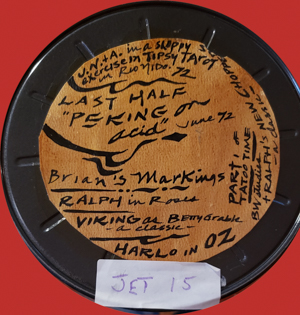 J.N.+A. in a sloppy
exercise in Tipsy Tarot
in Rio Nido. 72
LAST HALF
"PEKING on
acid" June 72
Brian's Markings
RALPH in Roses
VIKING as Betty Grable
- a classic -
HARLO in OZ
PART 1 of
TATOO TIME
BW Judies
+ RALPH'S NEW
a classic
JET 15